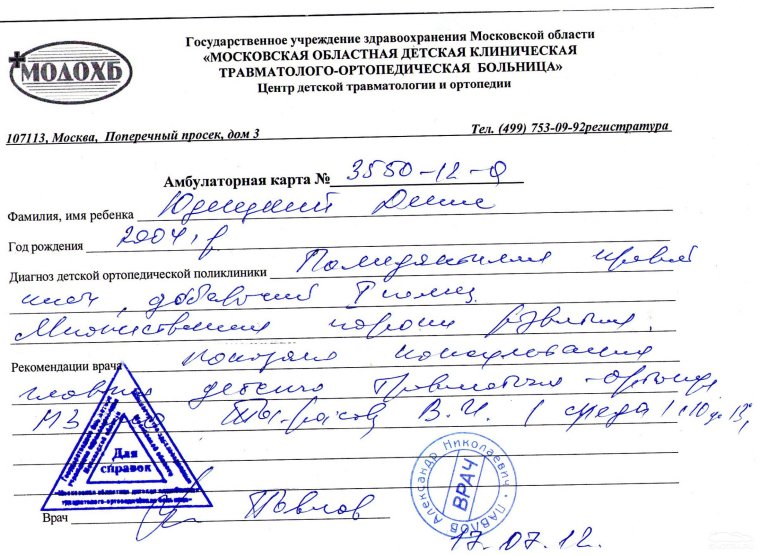 МОДОХБ
Государственное учреждение здравоохранения Московской области
«МОСКОВСКАЯ ОБЛАСТНАЯ ДЕТСКАЯ КЛИНИЧЕСКАЯ
ТРАВМАТОЛОГО-ОРТОПЕДИЧЕСКАЯ БОЛЬНИЦА»
Центр детской травматологии и ортопедии
107113, Москва, Поперечный просек, дом 3 Тел. (499) 753-09-92регистратура
Амбулаторная карта № 3550-12-О
Фамилия, имя ребенка Денис
Год рождения 2004 г.р
Диагноз детской ортопедической поликлиники Полидактилия правой
кисти, добавочный I палец
Множественные пороки развития.
Рекомендации врача показана консультация
главного детского травматолога-ортопеда
МЗ В.И. (среда) с 10 до 13,
Для
справок
Врач Павлов
ПАВЛОВ Александр Николаевич
ВРАЧ
17.07.12.